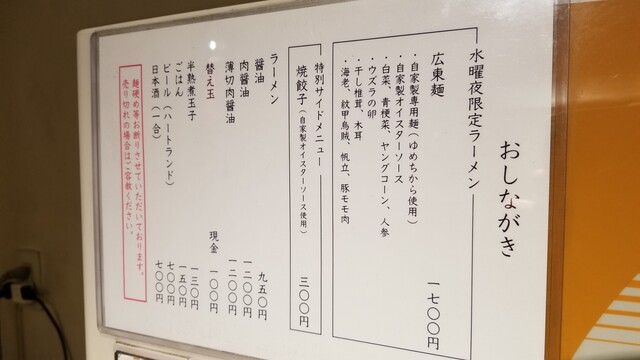 おしながき
水曜夜限定ラーメン
広東麺 一七〇〇円
・自家製専用麺(ゆめちから使用)
・自家製オイスターソース
・白菜、青梗菜、ヤングコーン、人参
・ウズラの卵
・干し椎茸、木耳
・海老、紋甲烏賊、帆立、豚モモ肉
特別サイドメニュー
焼餃子(自家製オイスターソース使用) 三〇〇円
ラーメン
醤油 九五〇円
肉醤油 一二〇〇円
薄切肉醤油 一二〇〇円
替え玉 現金 一〇〇円
半熟煮玉子 一三〇円
ごはん 一五〇円
ビール(ハートランド) 七〇〇円
日本酒(一合) 七〇〇円
麺硬め等お断りさせていただいております。
売り切れの場合はご容赦ください。